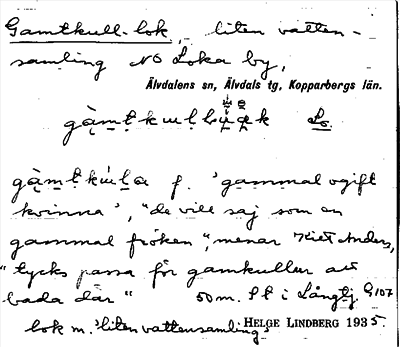 Gamtkull-lok, liten vatten-
samling NO Loka by,
Älvdalens sn, Älvdals tg, Kopparbergs län.
Lo.
f. 'gammal ogift
kvinna', "de vill saj som en
gammal fröken", menar Kiet Anders,
"tycks passa för gamkullur att
bada där" 50 m. St i Långtj. G107
lok m. 'liten vattensamling'
HELGE LINDBERG 1935.